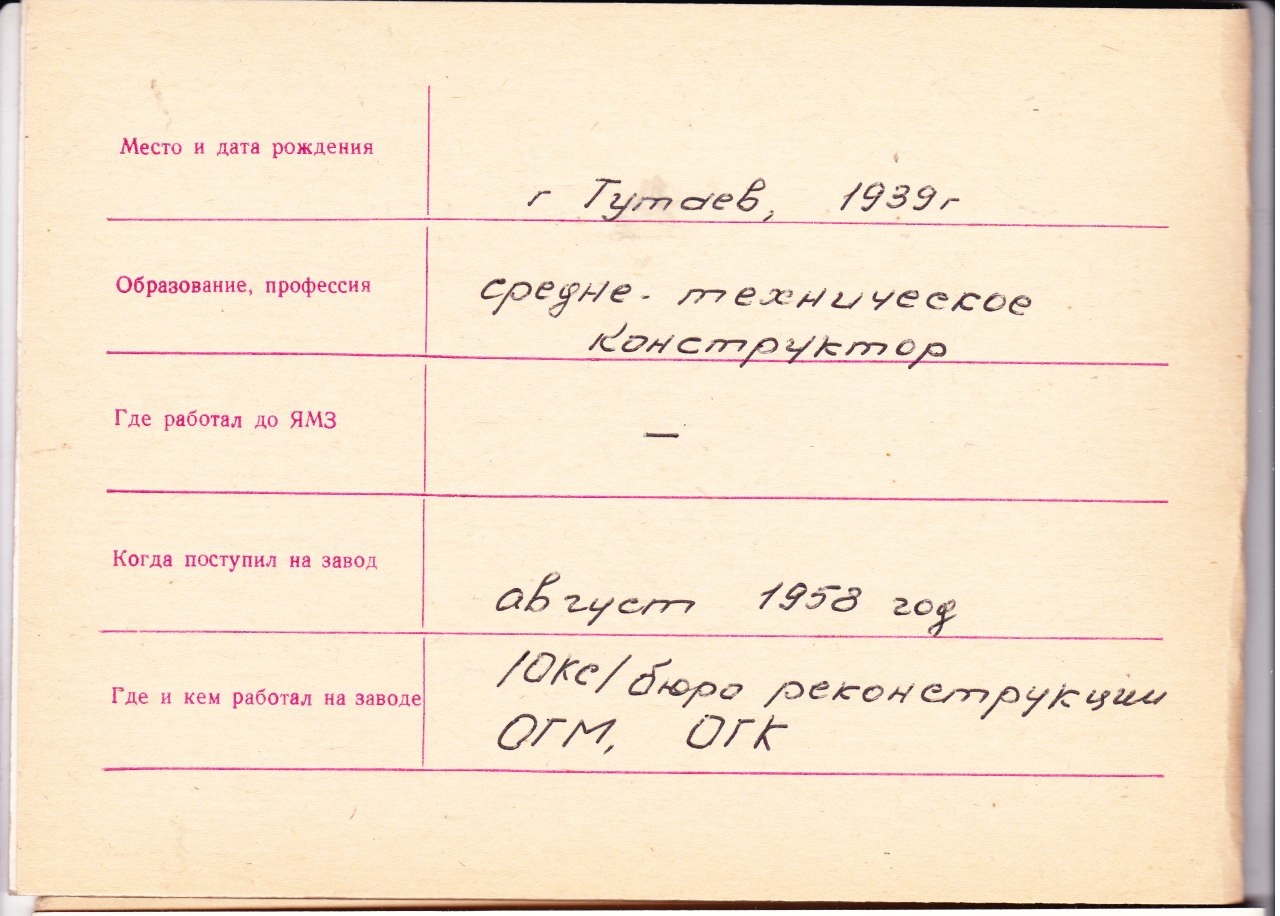 Место и дата рождения
г Тутаев, 1939г
Образование, профессия
средне-техническое
конструктор
Где работал до ЯМЗ
—
Когда поступил на завод
август 1958 год
Где и кем работал на заводе
/ОКС/ бюро реконструкции
ОГМ, ОГК